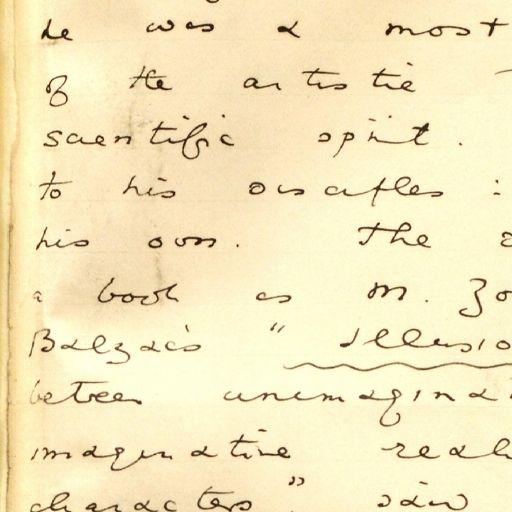 he was a most
of the artistic
scientific spirit.
to his disciples :
his own. The
a book as M. Zo
Balzac's "Illusio
between unimagina
imaginative reali
characters" said